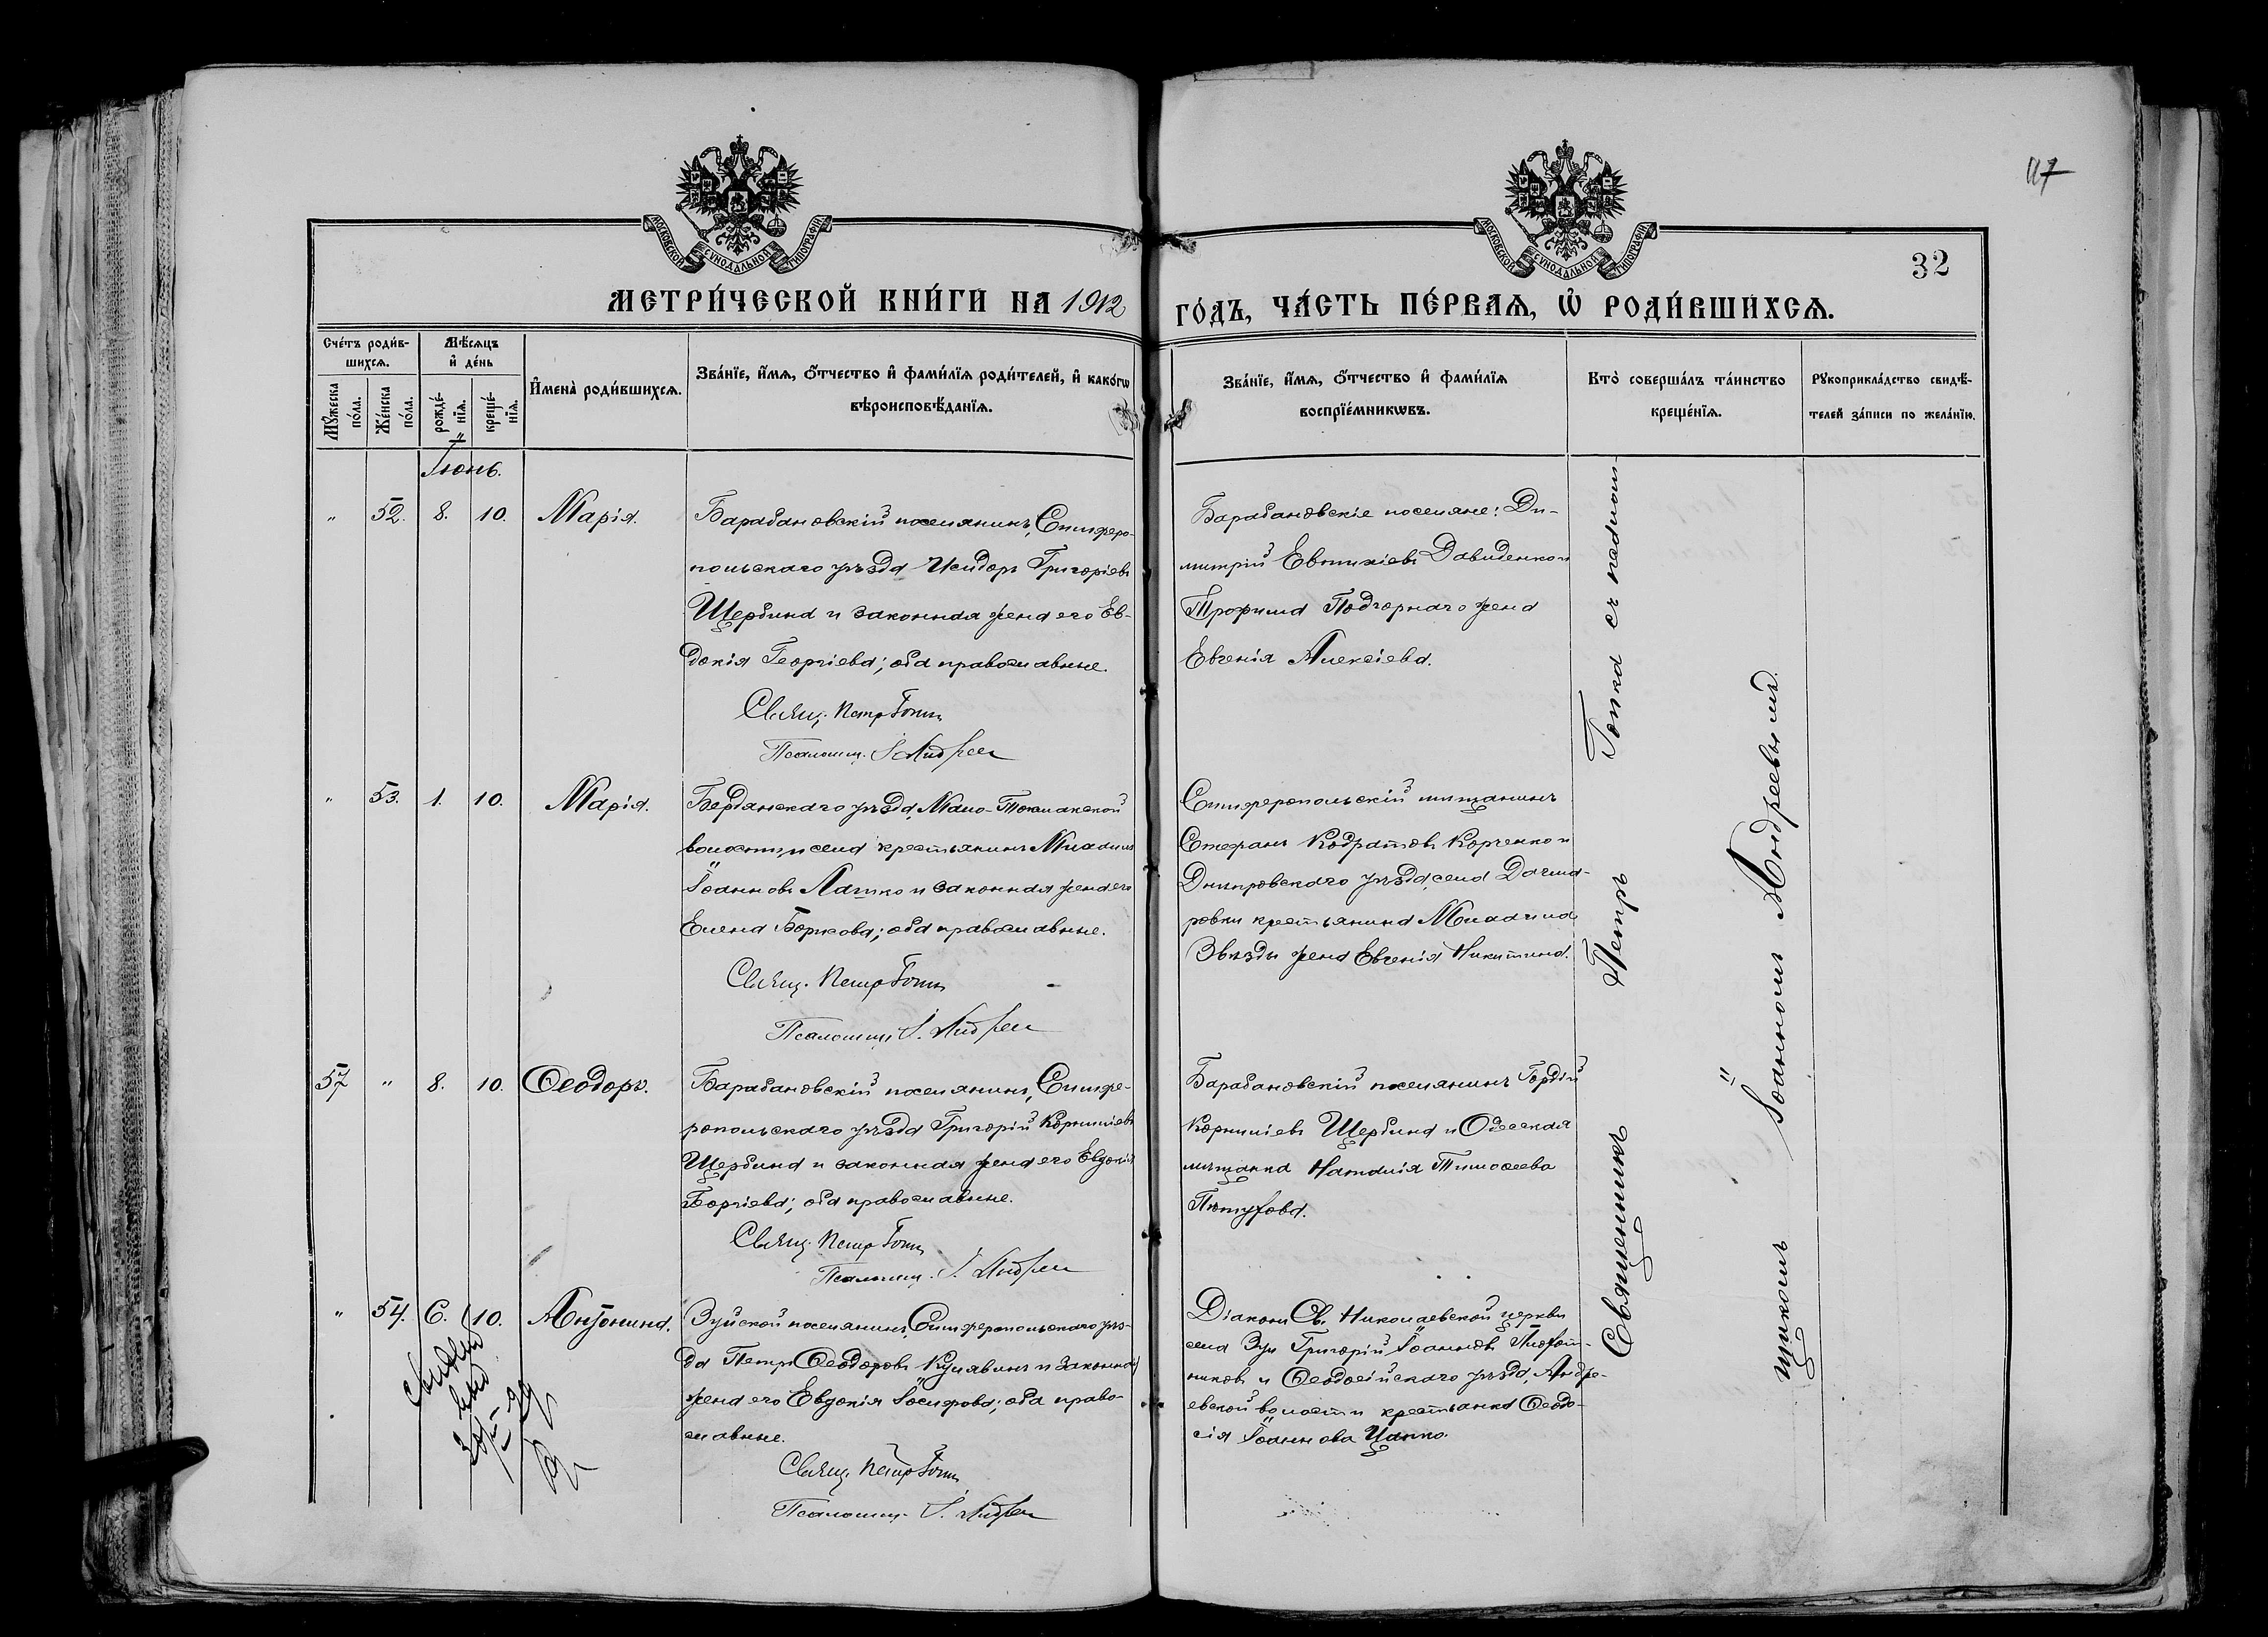 117
32
МОСКОВСКОЙ СѴНОДАЛЬНОЙ ТИПОГРАФІИ
МОСКОВСКОЙ СѴНОДАЛЬНОЙ ТИПОГРАФІИ
МЕТРИ́ЧЕСКОЙ КНИ́ГИ НА 1912 ГО́ДЪ, ЧА́СТЬ ПЕ́РВАѦ, Ѡ҆ РОДИ́ВШИХСѦ.
Сче́тъ роди́в-
шихсѧ.
Мꙋ́жеска
по́ла.
Же́нска
по́ла.
Мѣ́сѧцъ
и҆ де́нь
рожде́-
нїѧ.
креще́-
нїѧ.
И҆мена̀ роди́вшихсѧ.
Зва́нїе, и҆́мѧ, ѻ҆́тчество и҆ фами́лїѧ роди́телей, и҆ како́гѡ
вѣроисповѣ́данїѧ.
Зва́нїе, и҆́мѧ, ѻ҆́тчество и҆ фами́лїѧ
воспрїе́мникѡвъ.
Кто̀ соверша́лъ та́инство
креще́нїѧ.
Рꙋкоприкла́дство свидѣ́-
телей за́писи по жела́нїю.
Іюнь.
" 52. 8. 10. Марія.
Барабановскій поселянинъ, Симферо-
польскаго уѣзда Исидоръ Григоріевъ
Щербина и законная жена его Ев-
докія Георгіева; оба православные.
Свящ. Петр
Псаломщ. І. Андрее
Барабановскіе поселяне: Ди-
митрій Евтихіевъ Давиденко и
Трофима Подгорнаго жена
Евгенія Алексіева.
" 53. 1. 10. Марія.
Бердянскаго уѣзда, Мало-Токмакской
волости, и села крестьянинъ
Іоанновъ Лашко и законная жена его
Елена Борисова; оба православные.
Свящ. Петр
Псаломщ. І. Андрее
Симферопольскій мѣщанинъ
Стефанъ Кодратовъ Корченко и
Днѣпровскаго уѣзда, села
ровки крестьянина
Звѣзды жена Евгенія Никитина.
57 " 8. 10. Ѳеодоръ.
Барабановскій поселянинъ, Симфе-
ропольскаго уѣзда Григорій Корниліевъ
Щербина и законная жена его Евдокія
Георгіева; оба православные.
Свящ. Петр
Псаломщ. І. Андрее
Барабановскій поселянинъ Гордій
Корниліевъ Щербина и Одесская
мѣщанка Наталія Тимоѳеева
Пѣтухова.
" 54. 6. 10. Антонина.
Зуйской поселянинъ, Симферопольскаго уѣз-
да Петръ Ѳеодоровъ Кулявинъ и законная
жена его Евдокія Іосифова; оба право-
славные.
Свящ. Петр
Псаломщ. І. Андрее
Діаконъ Св. Николаевской церкви
села Зуи Григорій Іоанновъ
никовъ и Ѳеодосійскаго уѣзда, Андре-
евской волости крестьянка Ѳеодо-
сія Іоаннова Цапко.
Священникъ Петръ Гопка съ псалом-
щикомъ Іоанномъ Андреевымъ.